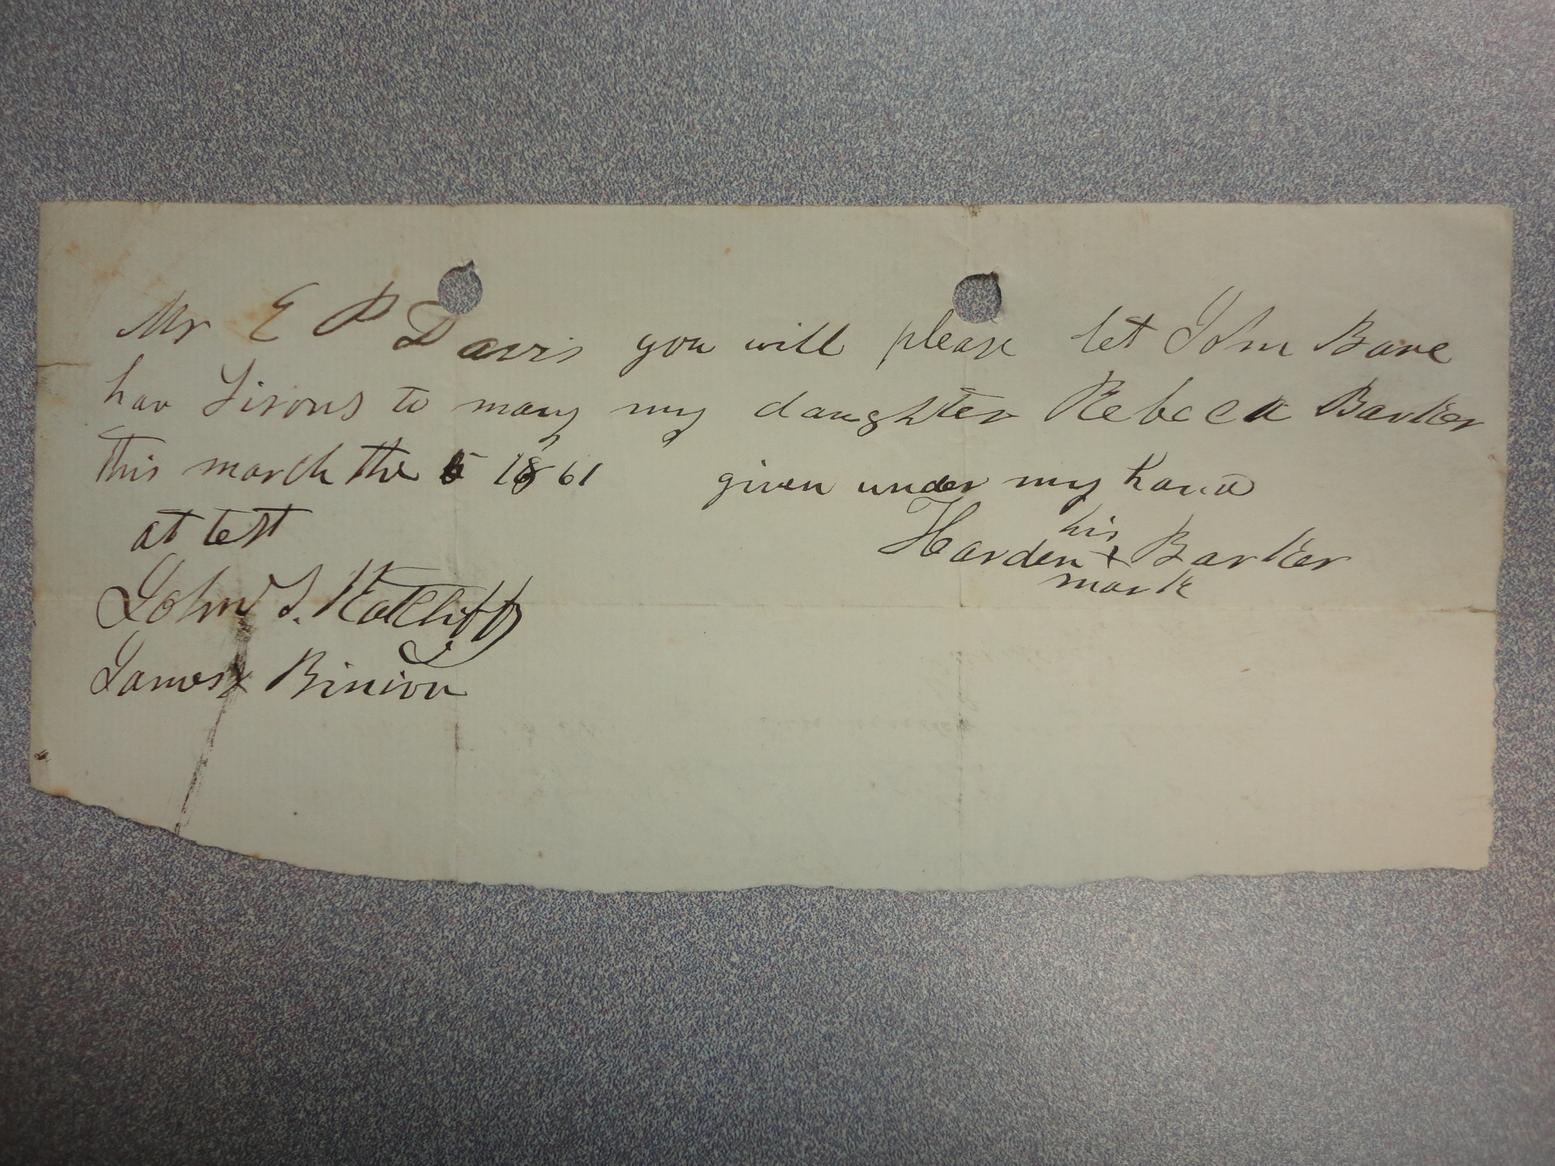 Mr E P Davis you will please let John Bane
hav Lisons to mary my daughter Rebeca Barker
this march the 5 1861 given under my hand
at test
his
Harden x Barker
mark
John S. Ratcliff
James x Binion